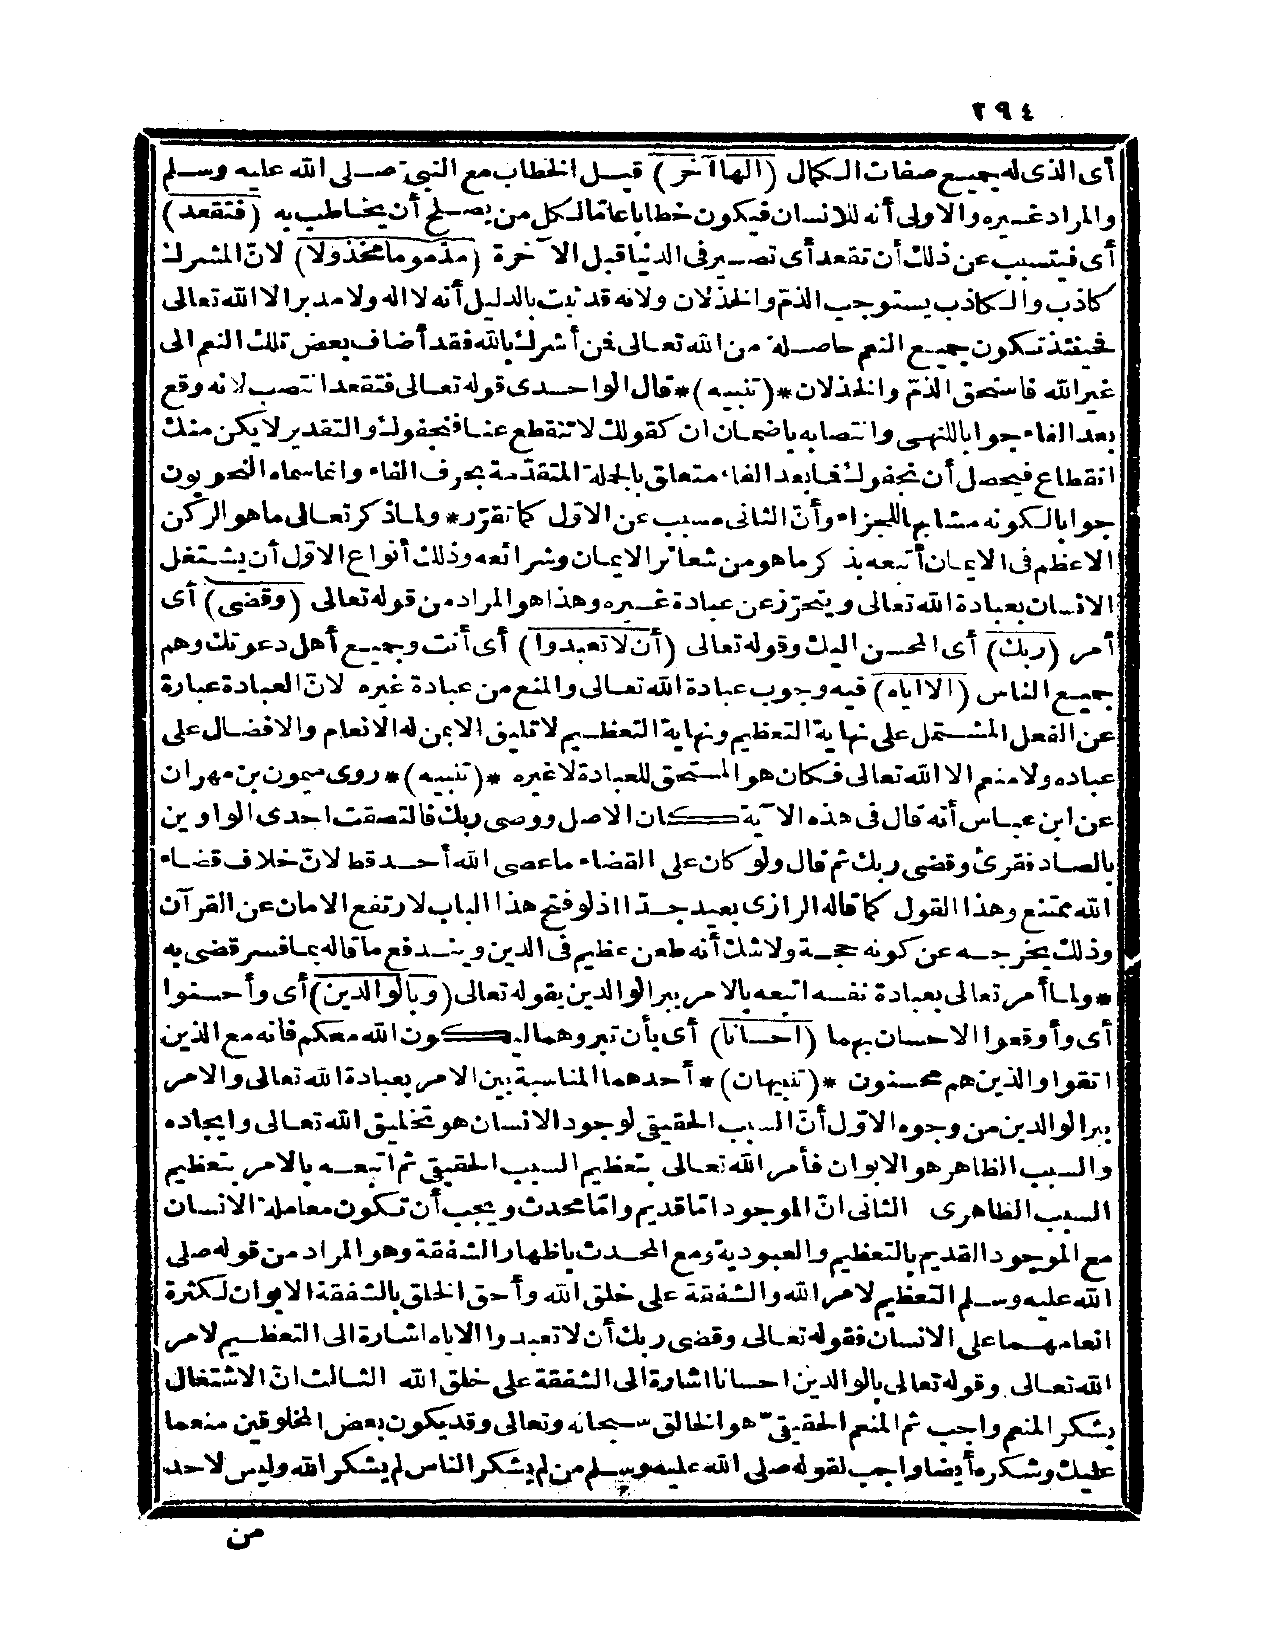 ٢٩٤
أى الذى له جميع صفات الكمال (الها آخر) قيل الخطاب مع النبىّ صلى الله عليه وسلم
والمراد غيره والاولى أنه للانسان فيكون خطابا عامّا لكل من يصلح أن يخاطب به (فتقعد)
أى فيتسبب عن ذلك أن تقعد أى تصير فى الدنيا قبل الآخرة (مذموما مخذولا) لانّ المشرك
كاذب والكاذب يستوجب الذمّ والخذلان ولانه قد ثبت بالدليل أنه لا اله ولا مدبر الا الله تعالى
فحينئذ تكون جميع النعم حاصلة من الله تعالى فمن أشرك بالله فقد أضاف بعض تلك النعم الى
غير الله فاستحق الذمّ والخذلان *(تنبيه)* قال الواحدى قوله تعالى فتقعد انتصب لانه وقع
بعد الفاء جوابا للنهى وانتصابه باضمار ان كقولك لا تنقطع عنا فنجفوك والتقدير لا يكن منك
انقطاع فيحصل أن نجفوك فما بعد الفاء متعلق بالجملة المتقدّمة بحرف الفاء وانما سماه النحويون
جوابا لكونه مشابها للجزاء وأنّ الثانى مسبب عن الاوّل كما تقرّر * ولما ذكر تعالى ما هو الركن
الاعظم فى الايمان أتبعه بذكر ما هو من شعائر الايمان وشرائعه وذلك أنواع الاوّل أن يشتغل
الانسان بعبادة الله تعالى ويتحرّز عن عبادة غيره وهذا هو المراد من قوله تعالى (وقضى) أى
أمر (ربك) أى المحسن اليك وقوله تعالى (أن لا تعبدوا) أى أنت وجميع أهل دعوتك وهم
جميع الناس (الا اياه) فيه وجوب عبادة الله تعالى والمنع من عبادة غيره لانّ العبادة عبارة
عن الفعل المشتمل على نهاية التعظيم ونهاية التعظيم لا تليق الا بمن له الانعام والافضال على
عباده ولا منعم الا الله تعالى فكان هو المستحق للعبادة لا غيره *(تنبيه)* روى ميمون بن مهران
عن ابن عباس أنه قال فى هذه الآية كان الاصل ووصى ربك فالتصقت احدى الواوين
بالصاد فقرئ وقضى ربك ثم قال ولو كان على القضاء ما عصى الله أحد قط لانّ خلاف قضاء
الله ممتنع وهذا القول كما قاله الرازى بعيد جدّا اذ لو فتح هذا الباب لارتفع الامان عن القرآن
وذلك يخرجه عن كونه حجة ولا شك أنه طعن عظيم فى الدين ويندفع ما قاله بما فسر قضى به
* ولما أمر تعالى بعبادة نفسه اتبعه بالامر ببر الوالدين بقوله تعالى (وبالوالدين) أى وأحسنوا
أى وأوقعوا الاحسان بهما (احسانا) أى بأن تبروهما ليكون الله معكم فانه مع الذين
اتقوا والذين هم محسنون *(تنبيهان)* أحدهما المناسبة بين الامر بعبادة الله تعالى والامر
ببر الوالدين من وجوه الاوّل أنّ السبب الحقيقى لوجود الانسان هو تخليق الله تعالى وايجاده
والسبب الظاهر هو الابوان فأمر الله تعالى بتعظيم السبب الحقيقى ثم اتبعه بالامر بتعظيم
السبب الظاهرى الثانى انّ الموجود امّا قديم وامّا محدث ويجب أن تكون معاملة الانسان
مع الموجود القديم بالتعظيم والعبودية ومع المحدث باظهار الشفقة وهو المراد من قوله صلى
الله عليه وسلم التعظيم لامر الله والشفقة على خلق الله وأحق الخلق بالشفقة الابوان لكثرة
انعامهما على الانسان فقوله تعالى وقضى ربك أن لا تعبدوا الا اياه اشارة الى التعظيم لامر
الله تعالى وقوله تعالى بالوالدين احسانا اشارة الى الشفقة على خلق الله الثالث انّ الاشتغال
بشكر المنعم واجب ثم المنعم الحقيقىّ هو الخالق سبحانه وتعالى وقد يكون بعض المخلوقين منعما
عليك وشكره أيضا واجب لقوله صلى الله عليه وسلم من لم يشكر الناس لم يشكر الله وليس لاحد
من